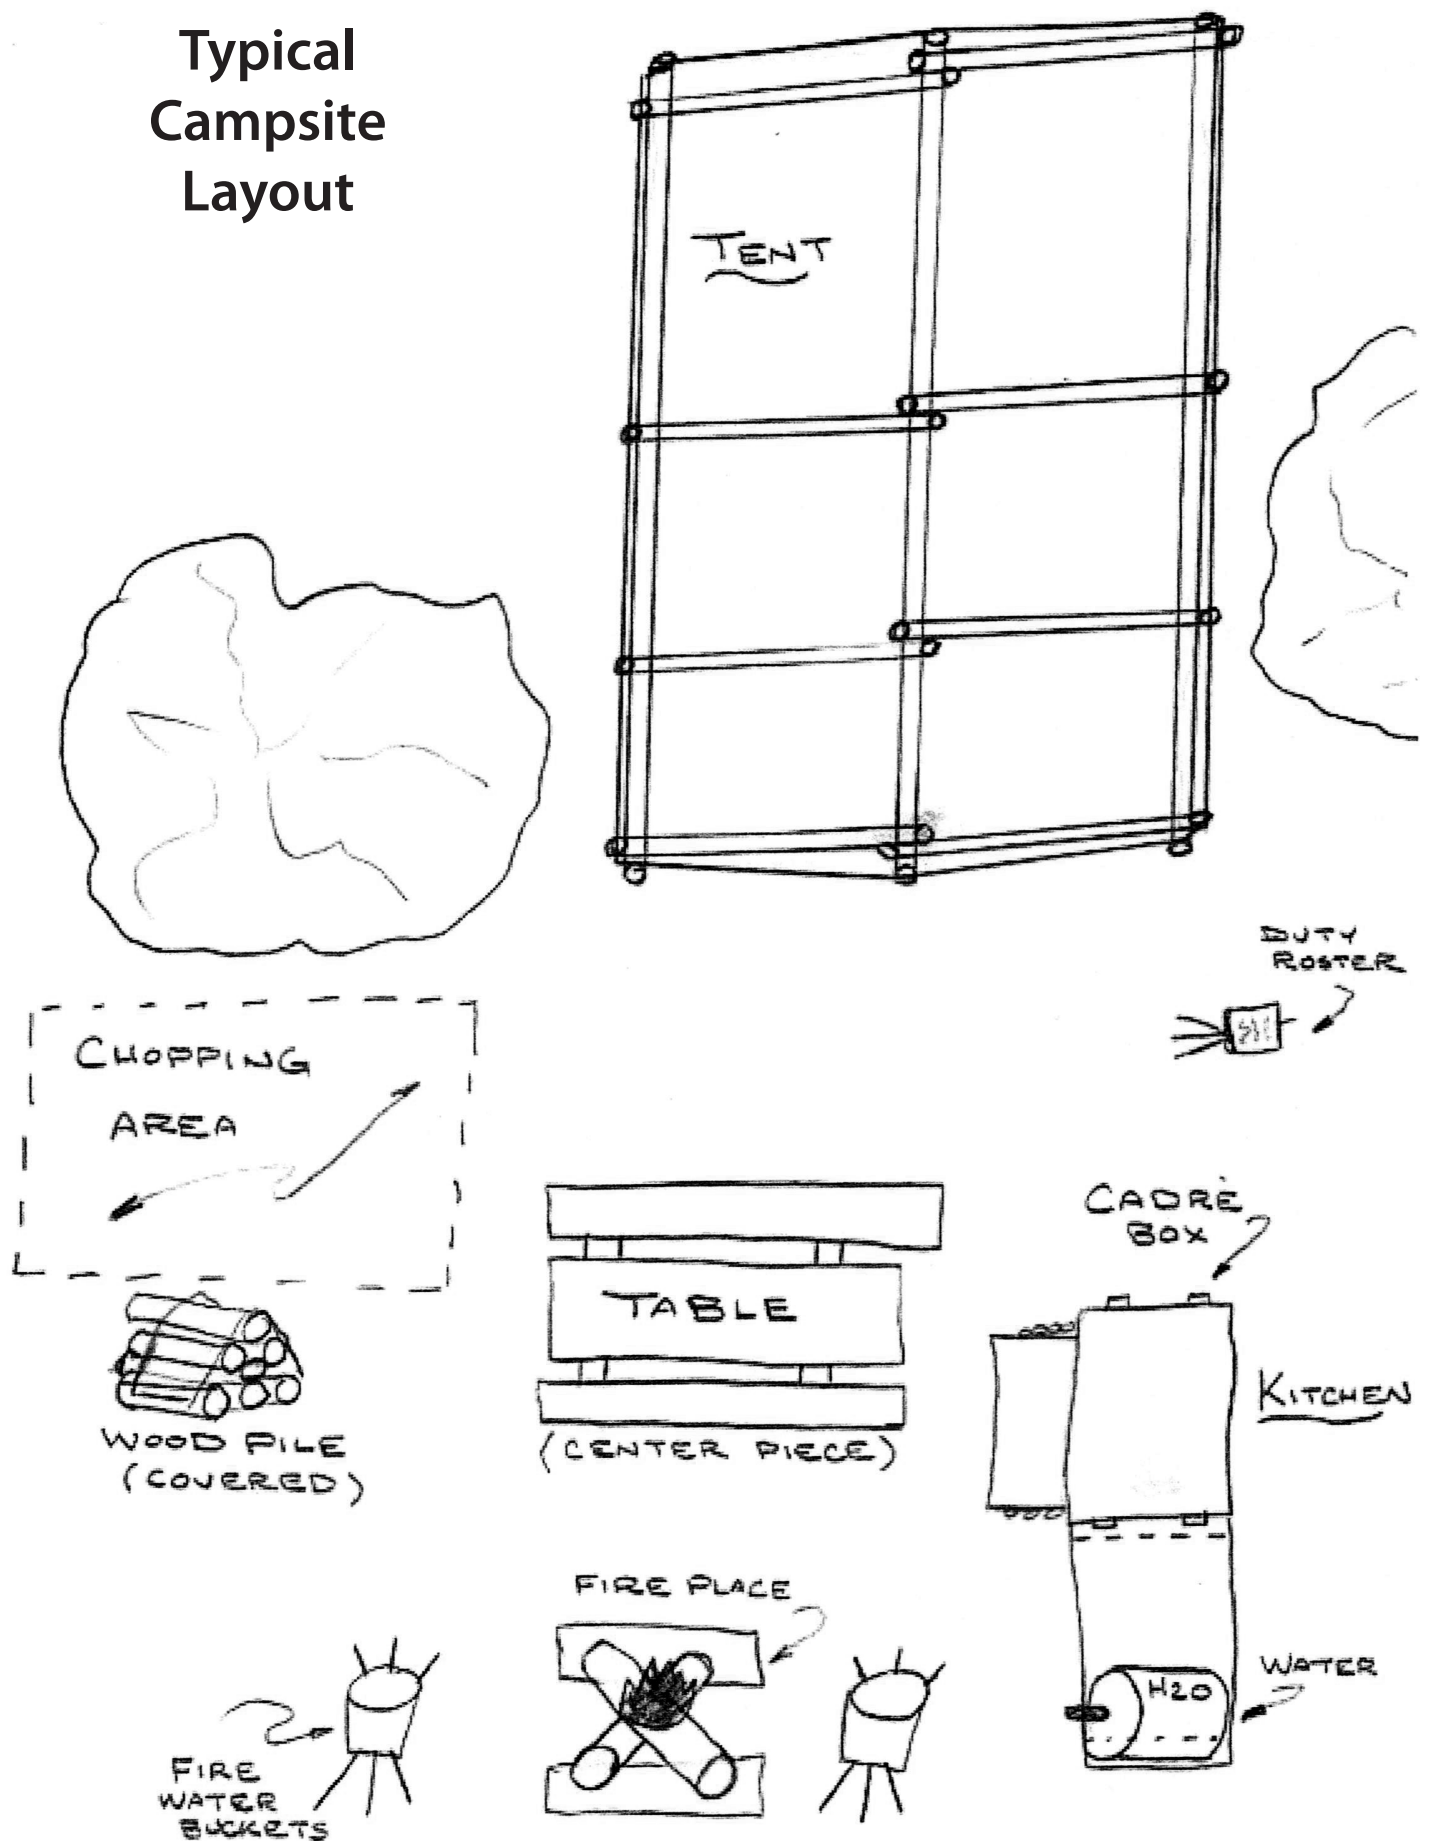 Typical
Campsite
Layout
TENT
DUTY
ROSTER
CHOPPING
AREA
CADRÈ
BOX
TABLE
KITCHEN
WOOD PILE
(COVERED)
(CENTER PIECE)
FIRE PLACE
WATER
H20
FIRE
WATER
BUCKETS